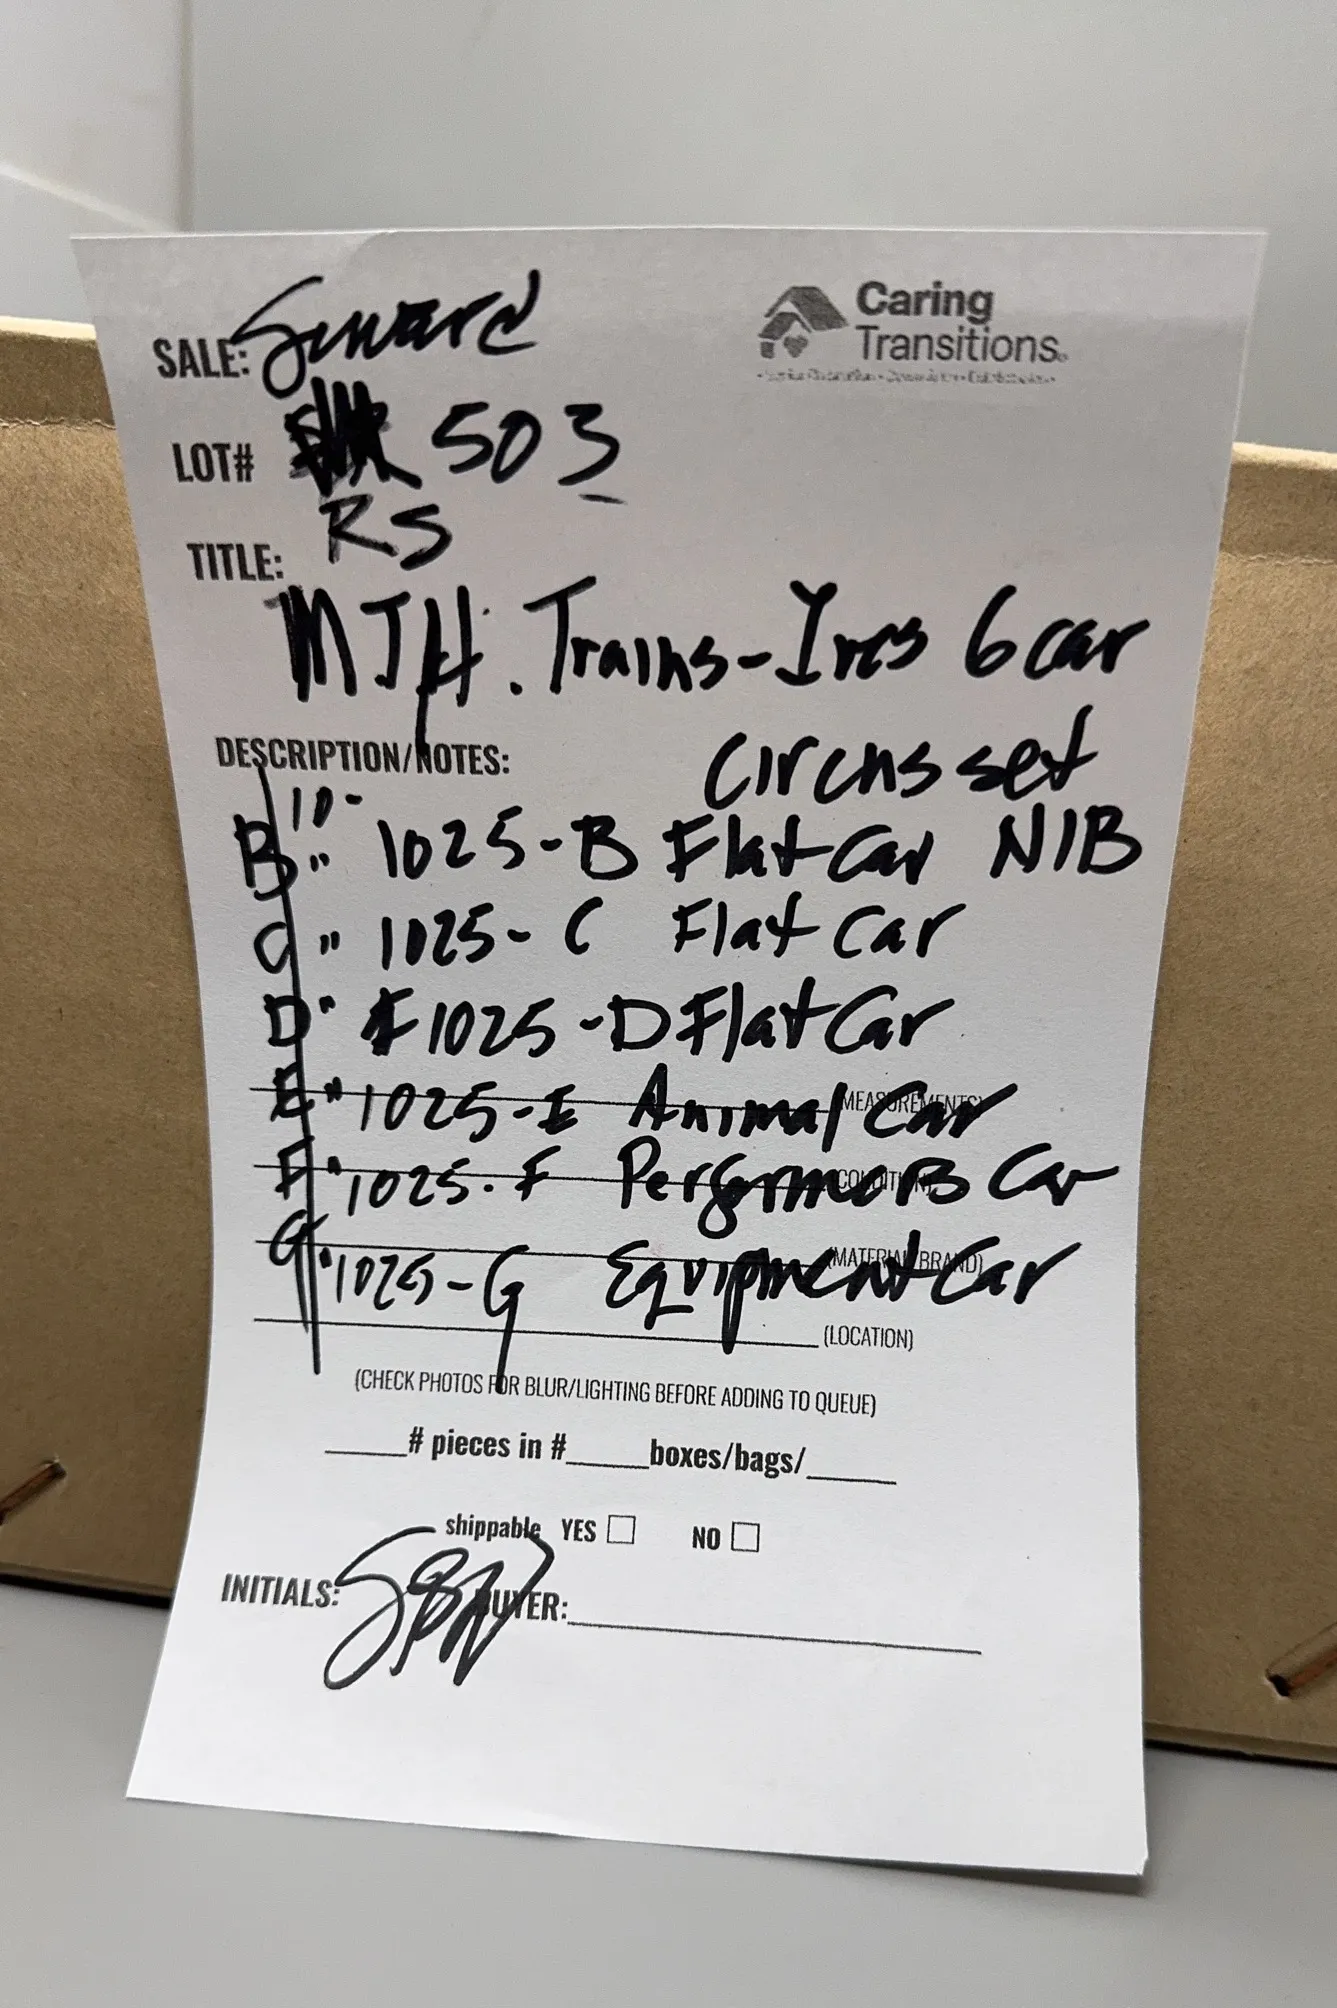 Caring
Transitions
SALE: Seward
LOT# 503
RS
TITLE:
MTH. Trains - Ives 6 car
DESCRIPTION/NOTES: Circus set
10-
B " 1025-B Flat Car NIB
C " 1025-C Flat Car
D " 1025-D Flat Car
E " 1025-E Animal Car (MEASUREMENTS)
F " 1025-F Performers Car (CONDITION)
G " 1025-G Equipment Car (MATERIAL/BRAND)
(LOCATION)
(CHECK PHOTOS FOR BLUR/LIGHTING BEFORE ADDING TO QUEUE)
# pieces in # boxes/bags/
shippable YES NO
INITIALS: BUYER: